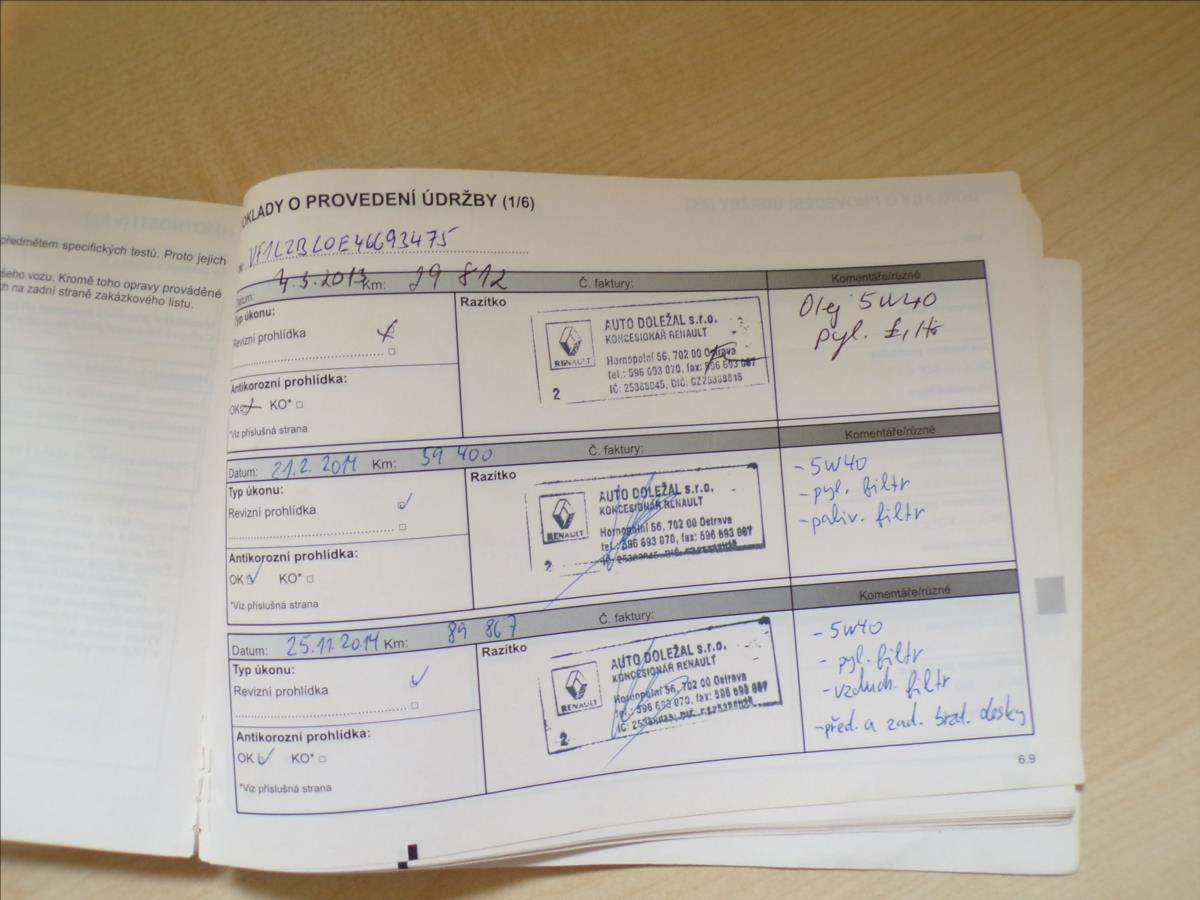 předmětem specifických testů. Proto jejich
šeho vozu. Kromě toho opravy prováděné
ch na zadní straně zakázkového listu.
OKLADY O PROVEDENÍ ÚDRŽBY (1/6)
VF1LZBL0E46693475
Datum: 4.3.2013 Km: 29 812 Č. faktury: Komentáře/různé
Typ úkonu:
Revizní prohlídka
Antikorozní prohlídka:
OK KO*
*Viz příslušná strana
Razítko
RENAULT
2
AUTO DOLEŽAL s.r.o.
KONCESIONÁŘ RENAULT
Hornopolní 56, 702 00 Ostrava
tel.: 596 693 070, fax: 596 693 067
Olej 5W40
pyl. filtr
Datum: 21.2.2014 Km: 59 400 Č. faktury: Komentáře/různé
Typ úkonu:
Revizní prohlídka
Antikorozní prohlídka:
OK KO*
*Viz příslušná strana
Razítko
RENAULT
2
AUTO DOLEŽAL s.r.o.
KONCESIONÁŘ RENAULT
Hornopolní 56, 702 00 Ostrava
tel.: 596 693 070, fax: 596 693 067
- 5W40
- pyl. filtr
- paliv. filtr
Datum: 25.11.2014 Km: 89 867 Č. faktury: Komentáře/různé
Typ úkonu:
Revizní prohlídka
Antikorozní prohlídka:
OK KO*
*Viz příslušná strana
Razítko
RENAULT
2
AUTO DOLEŽAL s.r.o.
KONCESIONÁŘ RENAULT
Hornopolní 56, 702 00 Ostrava
tel.: 596 693 070, fax: 596 693 067
- 5W40
- pyl. filtr
- vzduch. filtr
- před. a zad. brzd. desky
6.9